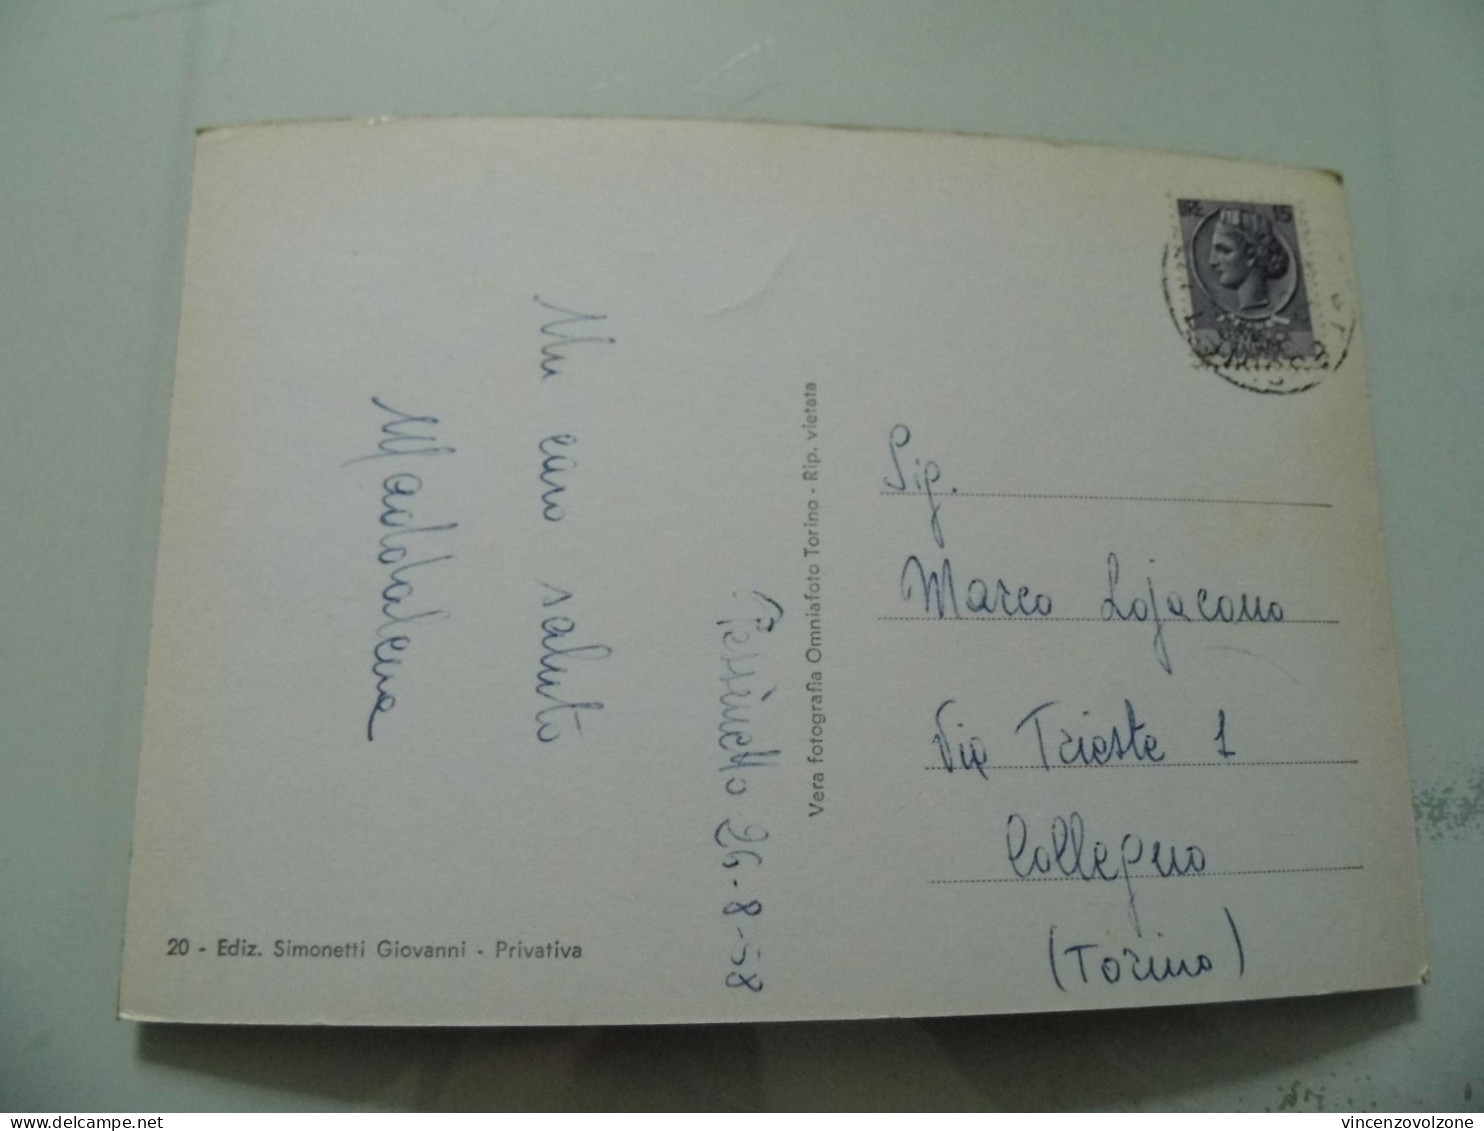 Un caro saluto
Maddalena
26-8-58
20 - Ediz. Simonetti Giovanni - Privativa
Vera fotografia Omniafoto Torino - Rip. vietata
LIRE 15
Sig.
Marco Lojacono
Via Trieste 1
Collegno
(Torino)
vincenzovolzone